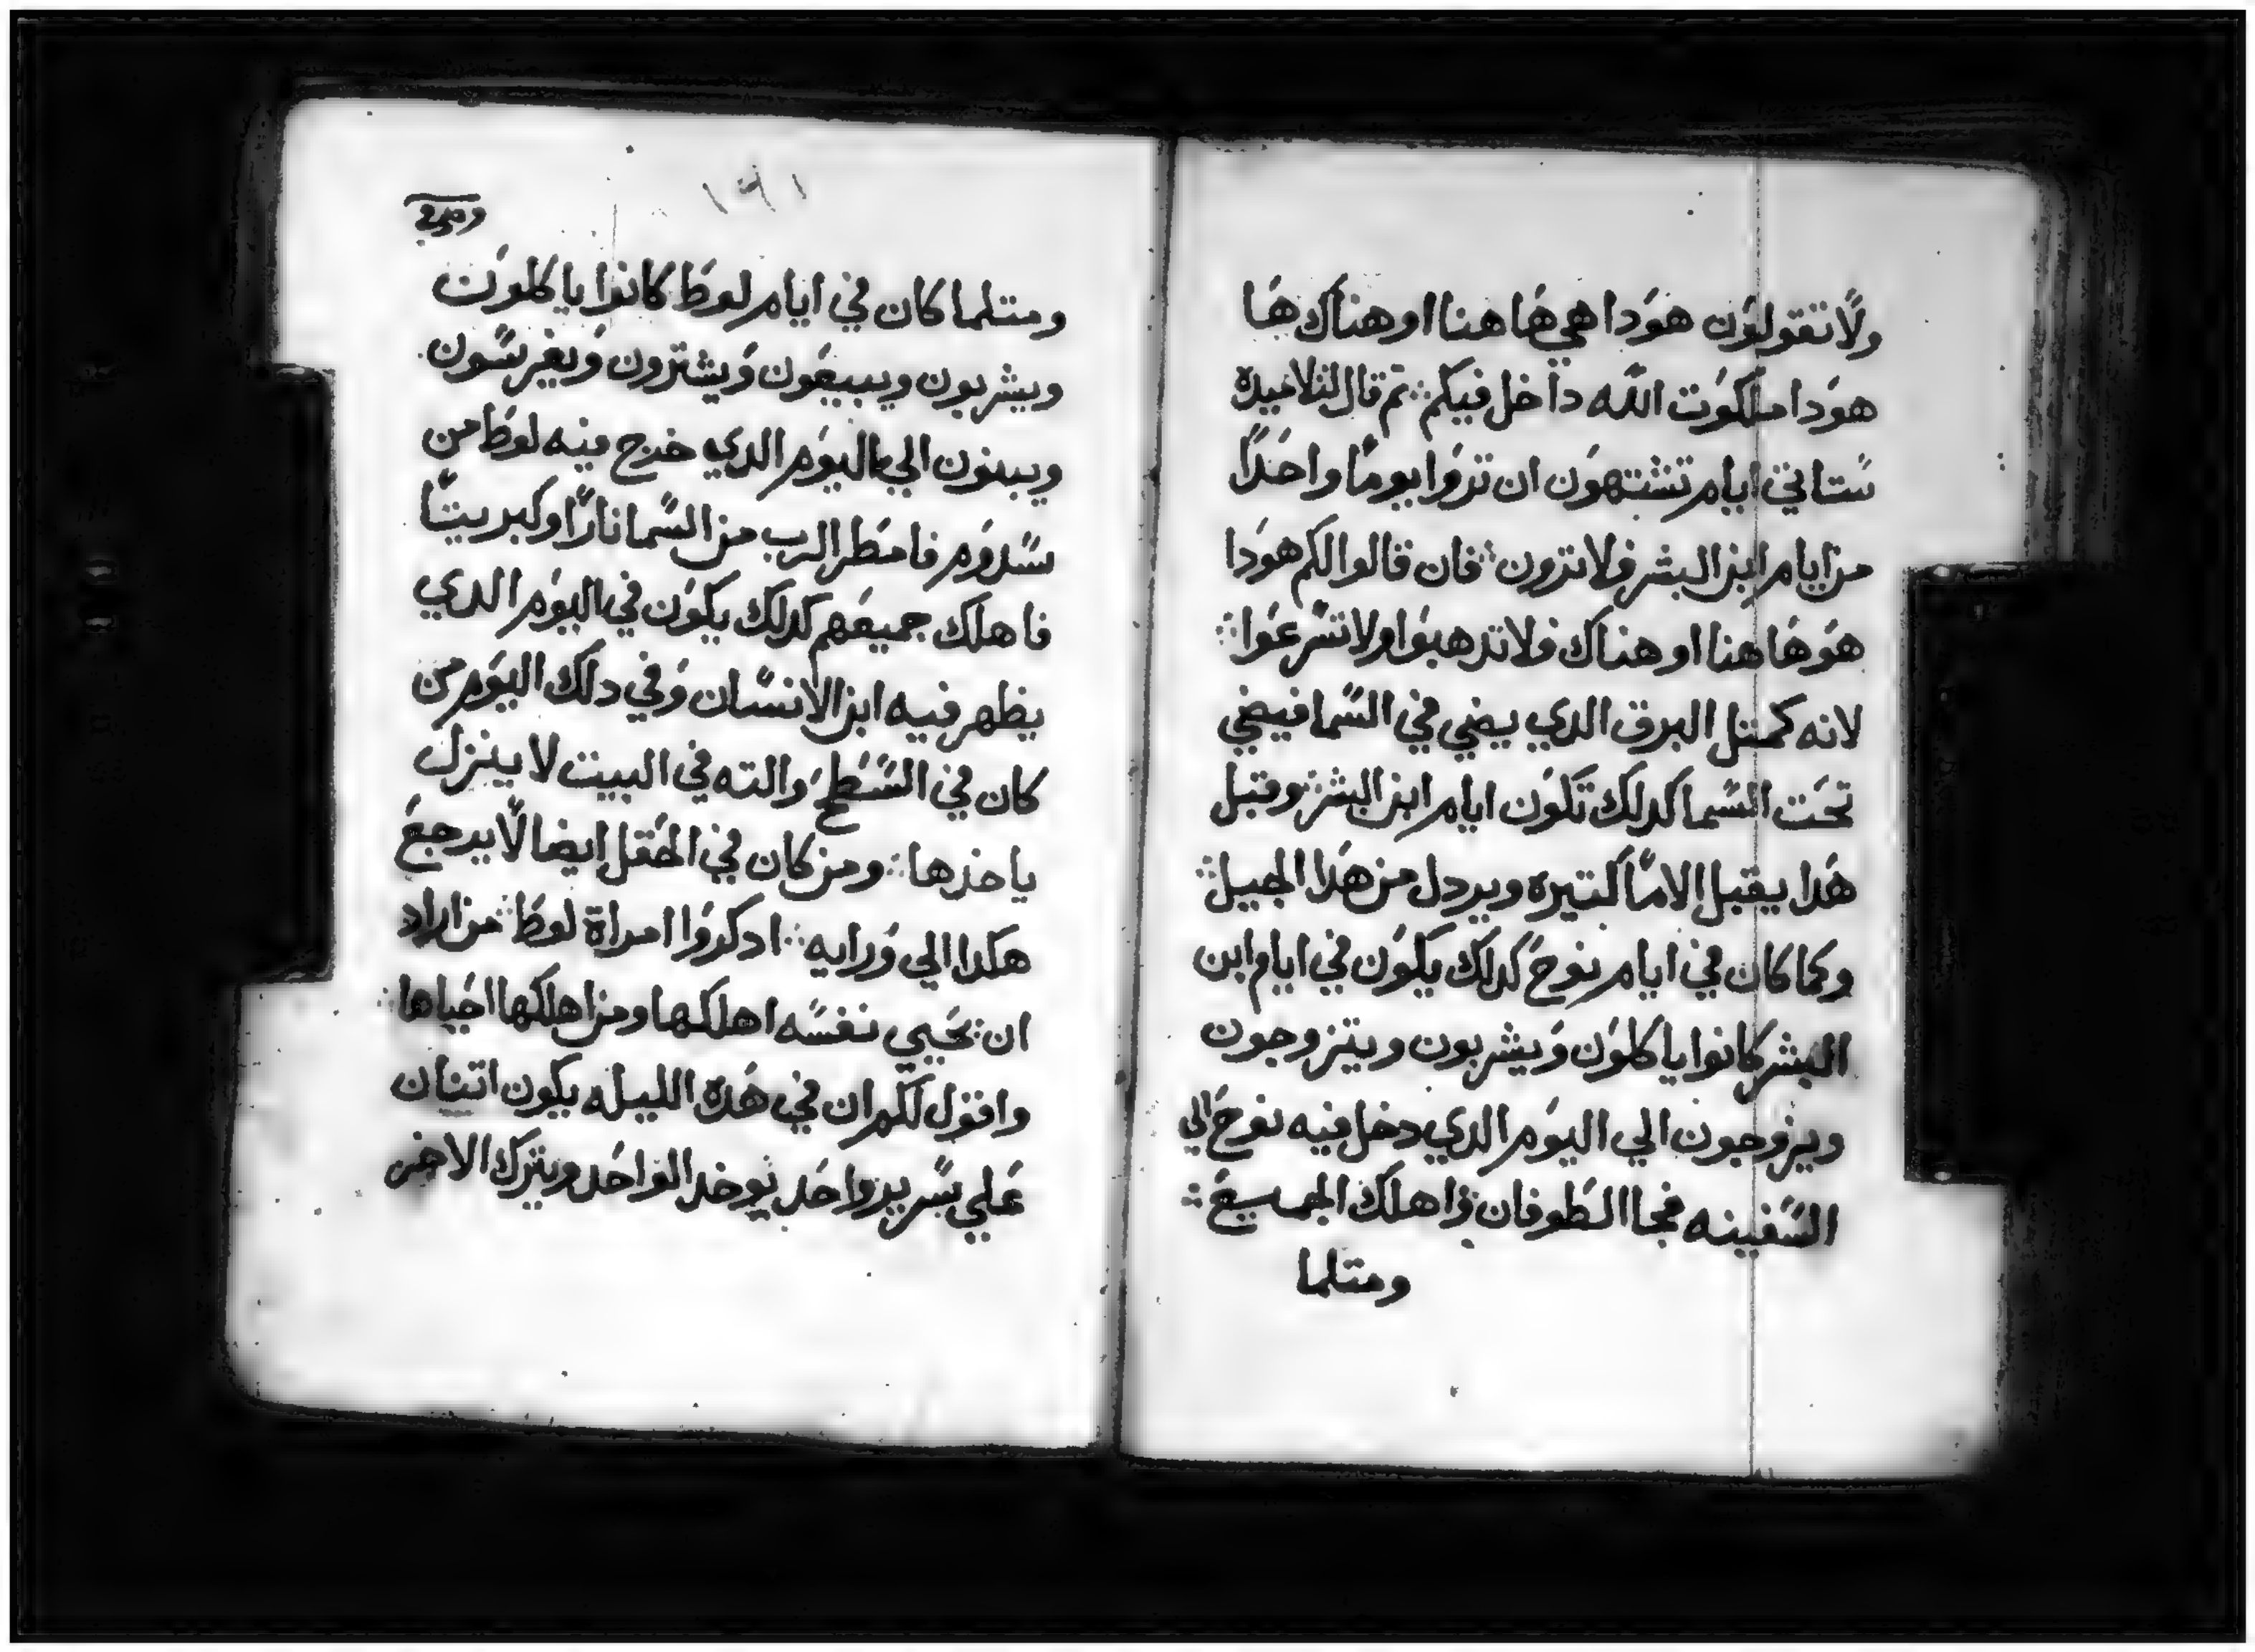 ولا تقولون هودا هي هاهنا او هناك ها
هودا ملكوت الله داخل فيكم ثم قال لتلاميده
ستاتي ايام تشتهون ان تروا يوما واحدا
من ايام ابن البشر فلا ترون فان قالوا لكم هودا
هو هاهنا او هناك فلا تدهبوا ولا تسرعوا
لانه كمتل البرق الدي يضي في السما فيضي
تحت السما كدلك تكون ايام ابن البشر وقبل
هدا يقبل الاما كتيره ويردل من هدا الجيل
وكما كان في ايام نوح كدلك يكون في ايام ابن
البشر كانوا ياكلون ويشربون ويتزوجون
ويزوجون الي اليوم الدي دخل فيه نوح الي
السفينه فجا الطوفان فاهلك الجميع
ومتلما
١٩١
ومتلما كان في ايام لوط كانوا ياكلون
ويشربون ويبيعون ويشترون ويغرسون
ويبنون الي اليوم الدي خرج فيه لوط من
سدوم فامطر الرب من السما نارا وكبريتا
فاهلك جميعهم كدلك يكون في اليوم الدي
يظهر فيه ابن الانسان وفي دلك اليوم من
كان في السطح والته في البيت لا ينزل
ياخذها ومن كان في الحقل ايضا لا يرجع
هكدا الي ورايه ادكروا امراة لوط من اراد
ان يحيي نفسه اهلكها ومن اهلكها احياها
واقول لكم ان في هده الليله يكون اتنان
علي سرير واحد يوخد الواحد ويترك الاخر